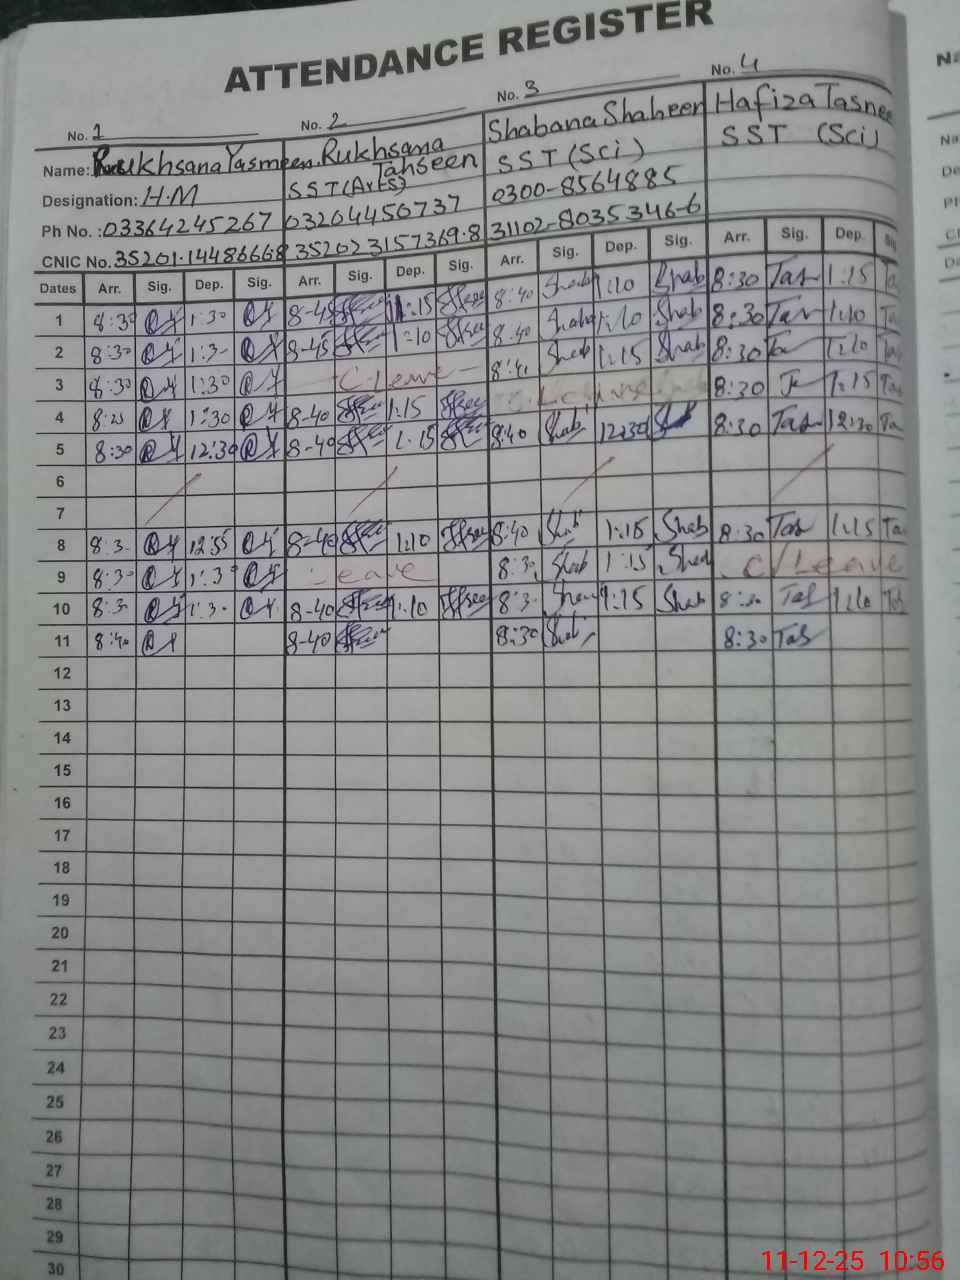 ATTENDANCE REGISTER
No. 1 No. 2 No. 3 No. 4
Name: Rukhsana Yasmeen Rukhsana Tahseen Shabana Shaheen Hafiza Tasnee
Designation: H.M SST (Arts) SST (Sci) SST (Sci)
Ph No. : 03364245267 03204450737 0300-8564885
CNIC No. 35201-14486668 352023157369-8 31102-8035346-6
Dates Arr. Sig. Dep. Sig. Arr. Sig. Dep. Sig. Arr. Sig. Dep. Sig. Arr. Sig. Dep.
1 8:30 1:30 8-45 1:15 8:40 Shab 1:10 Shab 8:30 Tas 1:15
2 8:30 1:3- 8-45 1:10 8:40 1:10 Shab 8:30 Tas 1:10
3 8:30 1:30 C-Leave 8:40 Shab 1:15 Shab 8:30 1:10
4 1:30 8-40 1:15 8:30 1:15
5 8:30 12:30 8-40 1:15 8:40 Shab 12:30 8:30 Tas 12:30
6
7
8 8:3- 12:55 8-40 1:10 8:40 Shab 1:15 Shab 8:30 Tas 1:15
9 8:30 1:30 Leave 8:30 Shab 1:15 Shab C/Leave
10 8:3- 1:3- 8-40 1:10 8:3- 1:15 Shab Tas 1:10
11 8:40 8-40 8:30 Shab 8:30 Tas
12
13
14
15
16
17
18
19
20
21
22
23
24
25
26
27
28
29
30
11-12-25 10:56